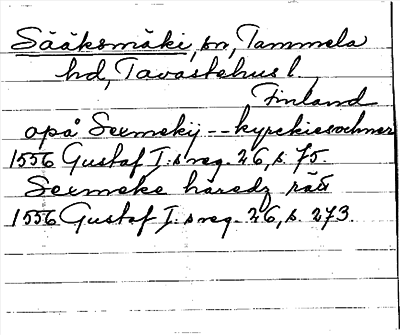 Sääksmäki, sn, Tammela
hd, Tavastehus l.
Finland
opå Seemekij -- kyrckiesochner
1556 Gustaf I:s reg. 26, s. 75.
Seemeke häredz rätt
1556 Gustaf I:s reg. 26, s. 273.